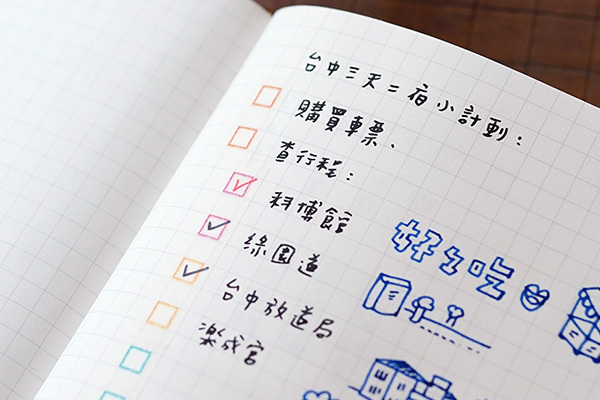 台中三天二夜小計劃：
購買車票、
查行程：
科博館
綠園道
台中放送局
樂成宮
好好吃